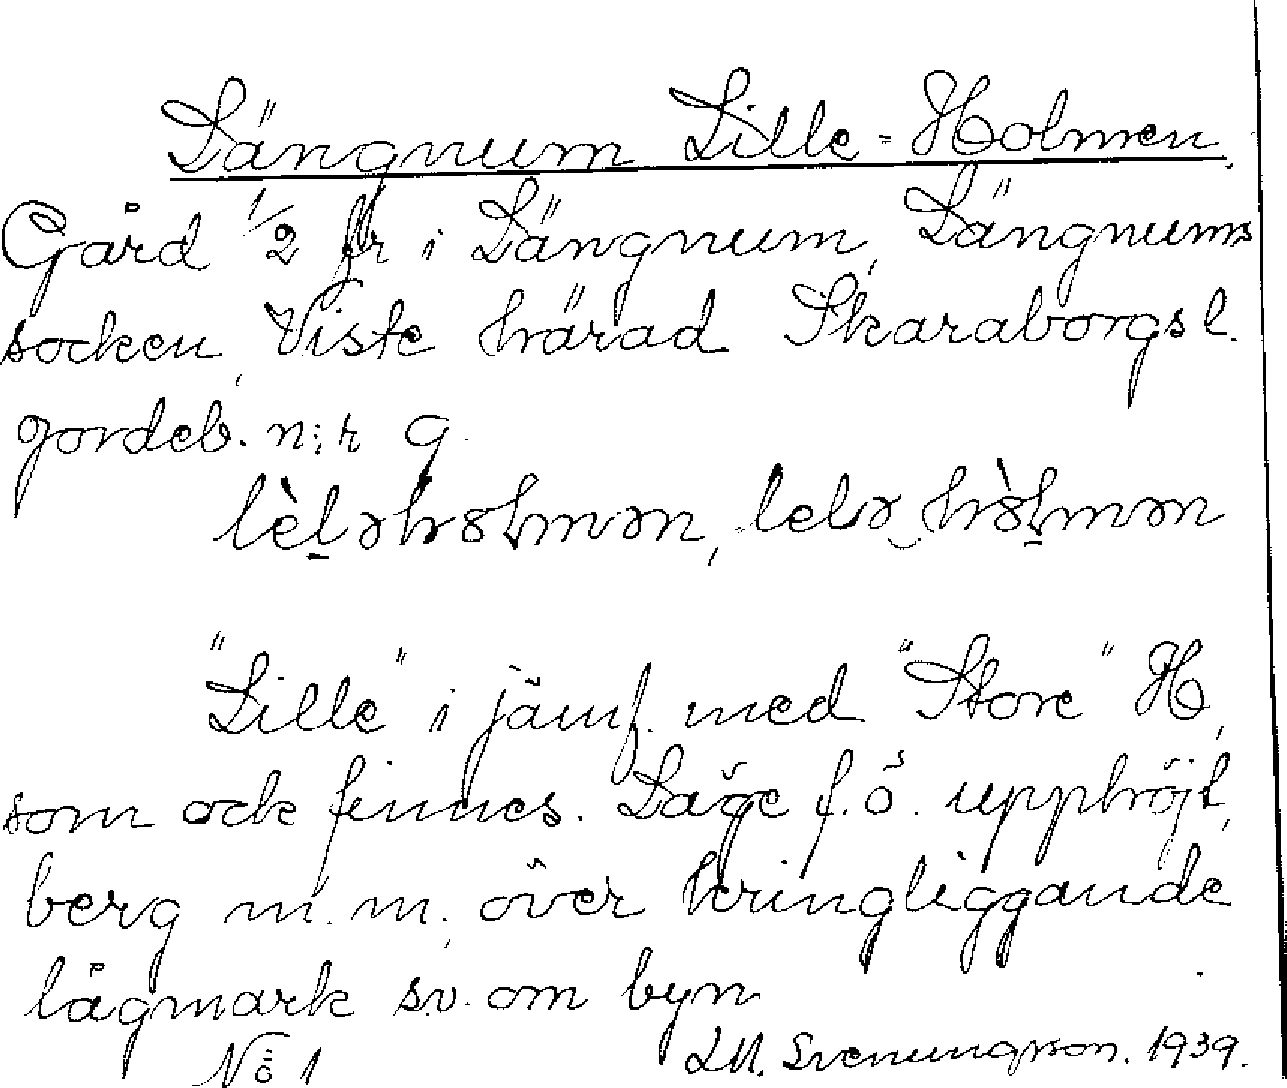 Längnum Lille-Holmen.
Gård 1/2 fr i Längnum, Längnums
socken, Viste härad Skaraborgs l.
jordeb. n:r 9.
"Lille" i jämf. med "Store" H,
som ock finnes. Läge f.ö. upphöjt,
berg m.m., över kringliggande
lågmark sv. om byn.
No 1 L.M. Svenungsson. 1939.